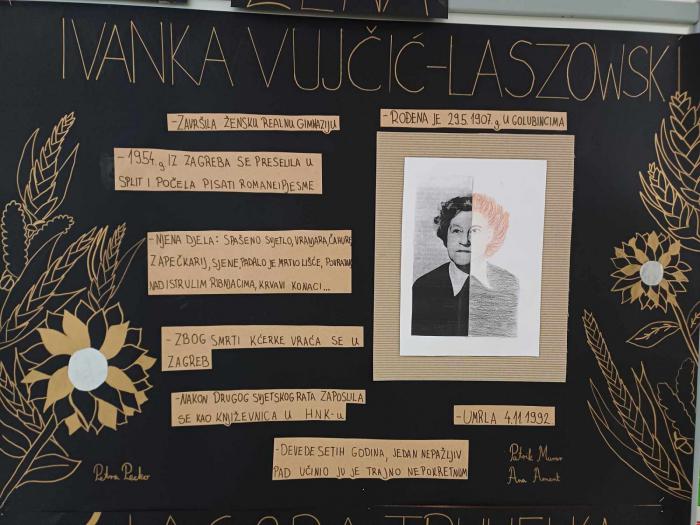 IVANKA VUJČIĆ-LASZOWSK
-ZAVRŠILA ŽENSKU REALNU GIMNAZIJU
-ROĐENA JE 29.5.1907.g U GOLUBINCIMA
-1954.g IZ ZAGREBA SE PRESELILA U
SPLIT I POČELA PISATI ROMANE I PJESME
-NJENA DJELA: SPAŠENO SVJETLO, VRANJARA, ČAHURE,
ZAPEČKARIJ, SJENE, PADALO JE MRTVO LIŠĆE,
NAD ISTRULIM RIBNJACIMA, KRVAVI KONACI...
-ZBOG SMRTI KĆERKE VRAĆA SE U
ZAGREB
-NAKON DRUGOG SVJETSKOG RATA ZAPOSLILA
SE KAO KNJIŽEVNICA U HNK-u
-UMRLA 4.11.1992
-DEVEDESETIH GODINA, JEDAN NEPAŽLJIV
PAD UČINIO JU JE TRAJNO NEPOKRETNOM
Petra Pecko
Patrik
Ana